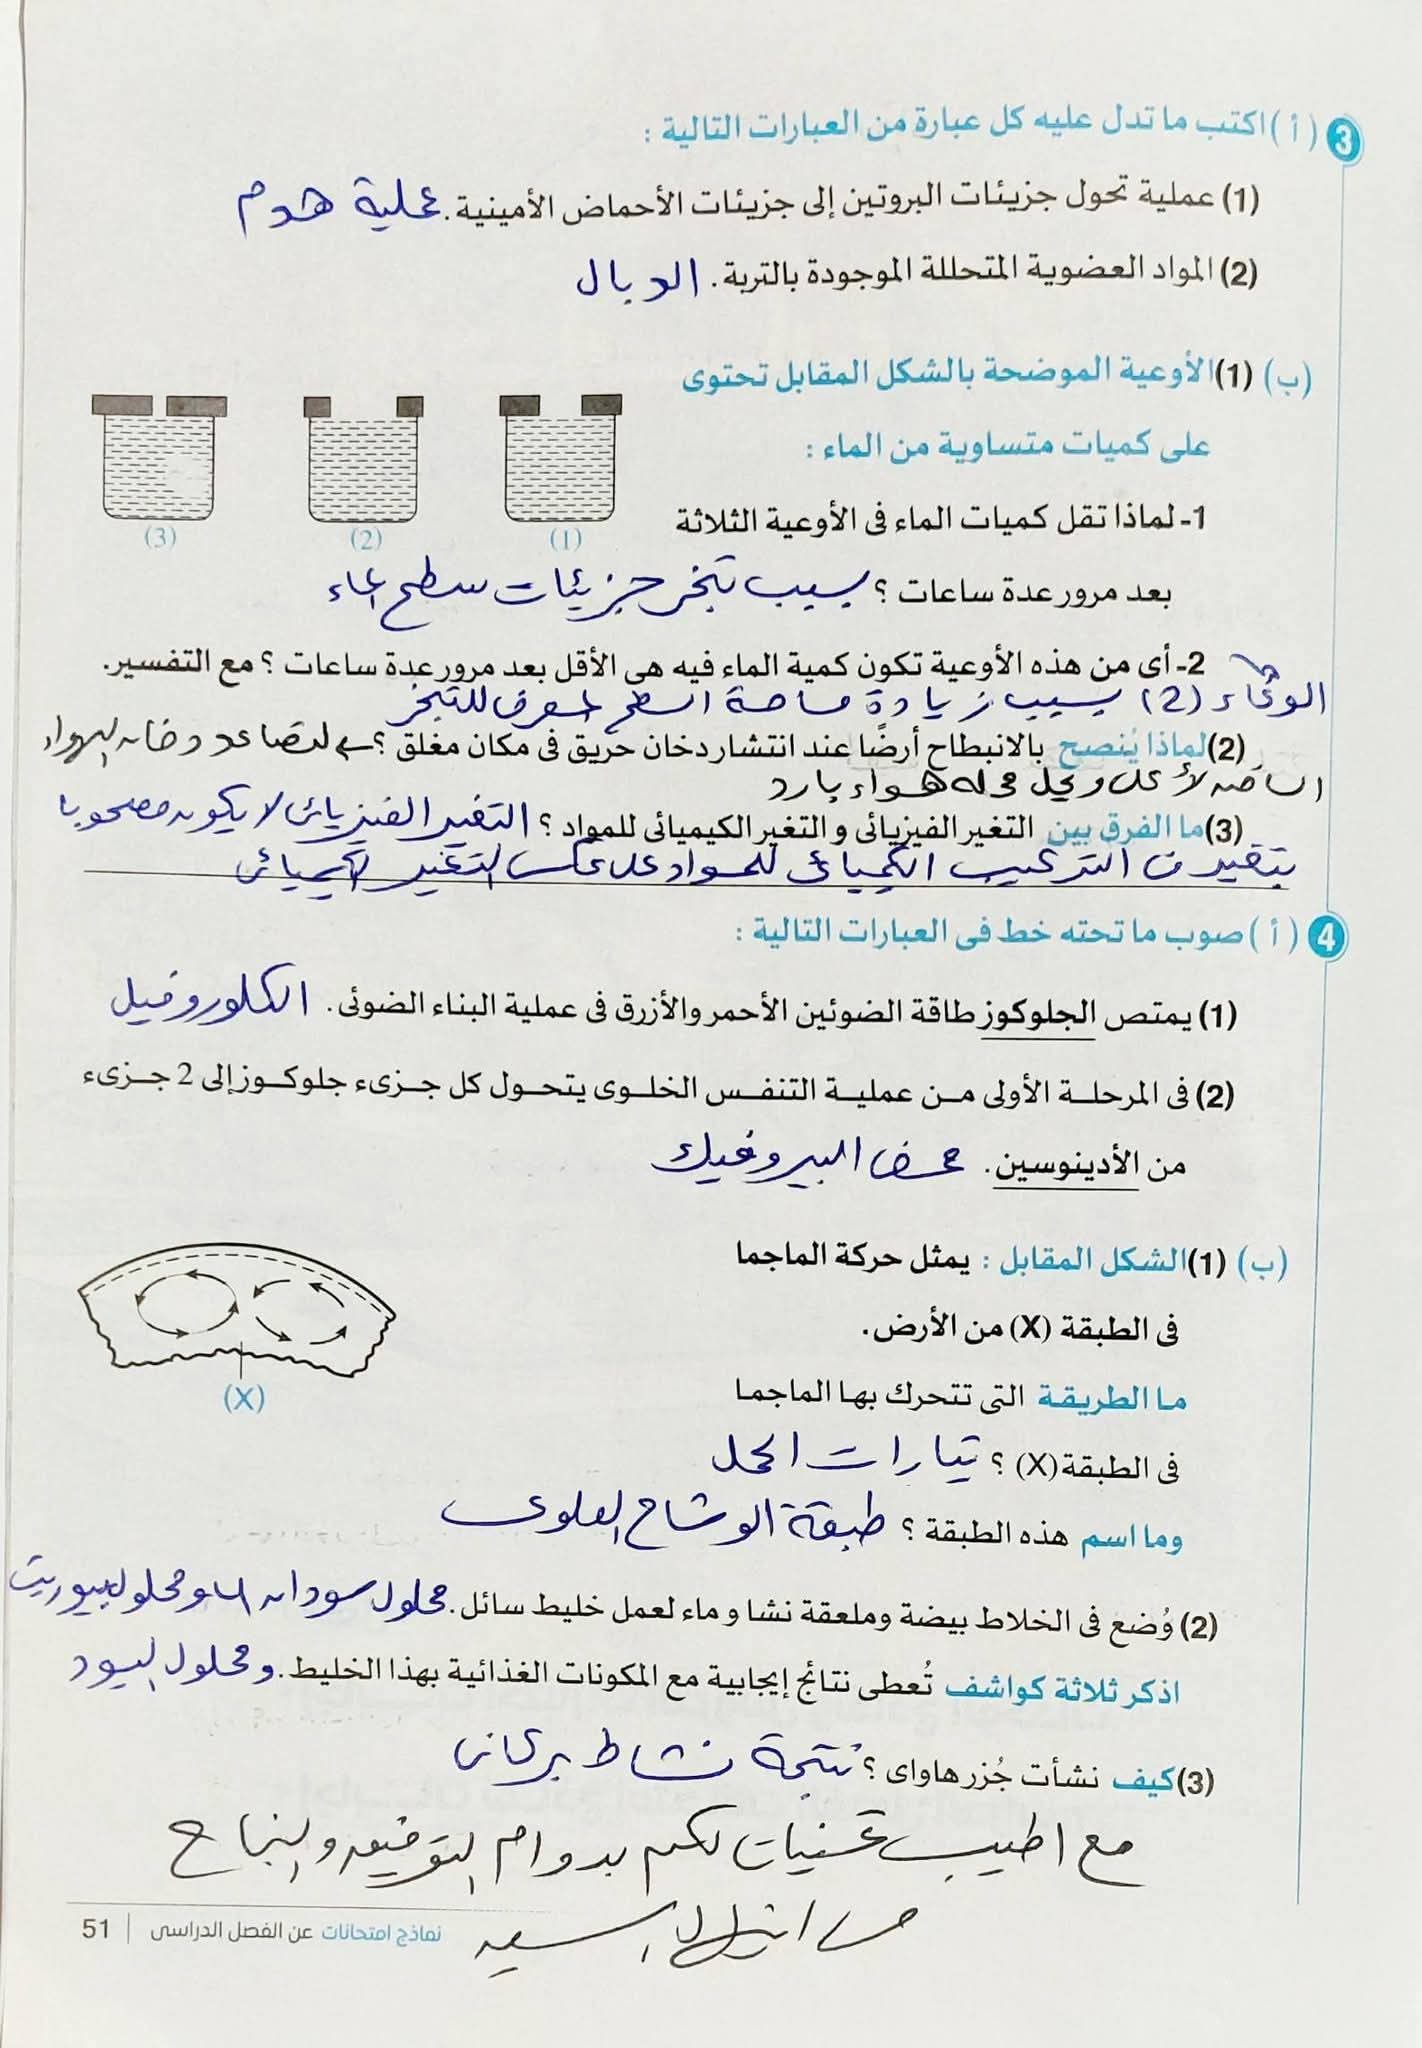 3 (أ) اكتب ما تدل عليه كل عبارة من العبارات التالية :
(1) عملية تحول جزيئات البروتين إلى جزيئات الأحماض الأمينية. عملية هدم
(2) المواد العضوية المتحللة الموجودة بالتربة. الدبال
(ب) (1) الأوعية الموضحة بالشكل المقابل تحتوى
على كميات متساوية من الماء :
(1) (2) (3)
1- لماذا تقل كميات الماء فى الأوعية الثلاثة
بعد مرور عدة ساعات ؟ بسبب تبخر جزيئات سطح الماء
2- أى من هذه الأوعية تكون كمية الماء فيه هى الأقل بعد مرور عدة ساعات ؟ مع التفسير.
الوعاء (2) بسبب زيادة مساحة السطح المعرض للتبخر
(2) لماذا يُنصح بالانبطاح أرضًا عند انتشار دخان حريق فى مكان مغلق ؟ لتصاعد دخان الهواء
الساخن لأعلى ويحل محله هواء بارد
(3) ما الفرق بين التغير الفيزيائى والتغير الكيميائى للمواد ؟ التغير الفيزيائى لا يكون مصحوبا
بتغير فى التركيب الكيميائى للمواد على عكس التغير الكيميائى
4 (أ) صوب ما تحته خط فى العبارات التالية :
(1) يمتص الجلوكوز طاقة الضوئين الأحمر والأزرق فى عملية البناء الضوئى. الكلوروفيل
(2) فى المرحلة الأولى من عملية التنفس الخلوى يتحول كل جزىء جلوكوز إلى 2 جزىء
من الأدينوسين. حمض البيروفيك
(ب) (1) الشكل المقابل : يمثل حركة الماجما
فى الطبقة (X) من الأرض.
(X)
ما الطريقة التى تتحرك بها الماجما
فى الطبقة (X) ؟ تيارات الحمل
وما اسم هذه الطبقة ؟ طبقة الوشاح العلوى
(2) وُضع فى الخلاط بيضة وملعقة نشا وماء لعمل خليط سائل. محلول سودان ومحلول بيوريت
اذكر ثلاثة كواشف تُعطى نتائج إيجابية مع المكونات الغذائية بهذا الخليط. ومحلول اليود
(3) كيف نشأت جُزر هاواى ؟ نتيجة نشاط بركانى
مع اطيب تمنيات لكم بدوام التوفيق والنجاح
نماذج امتحانات عن الفصل الدراسى | 51